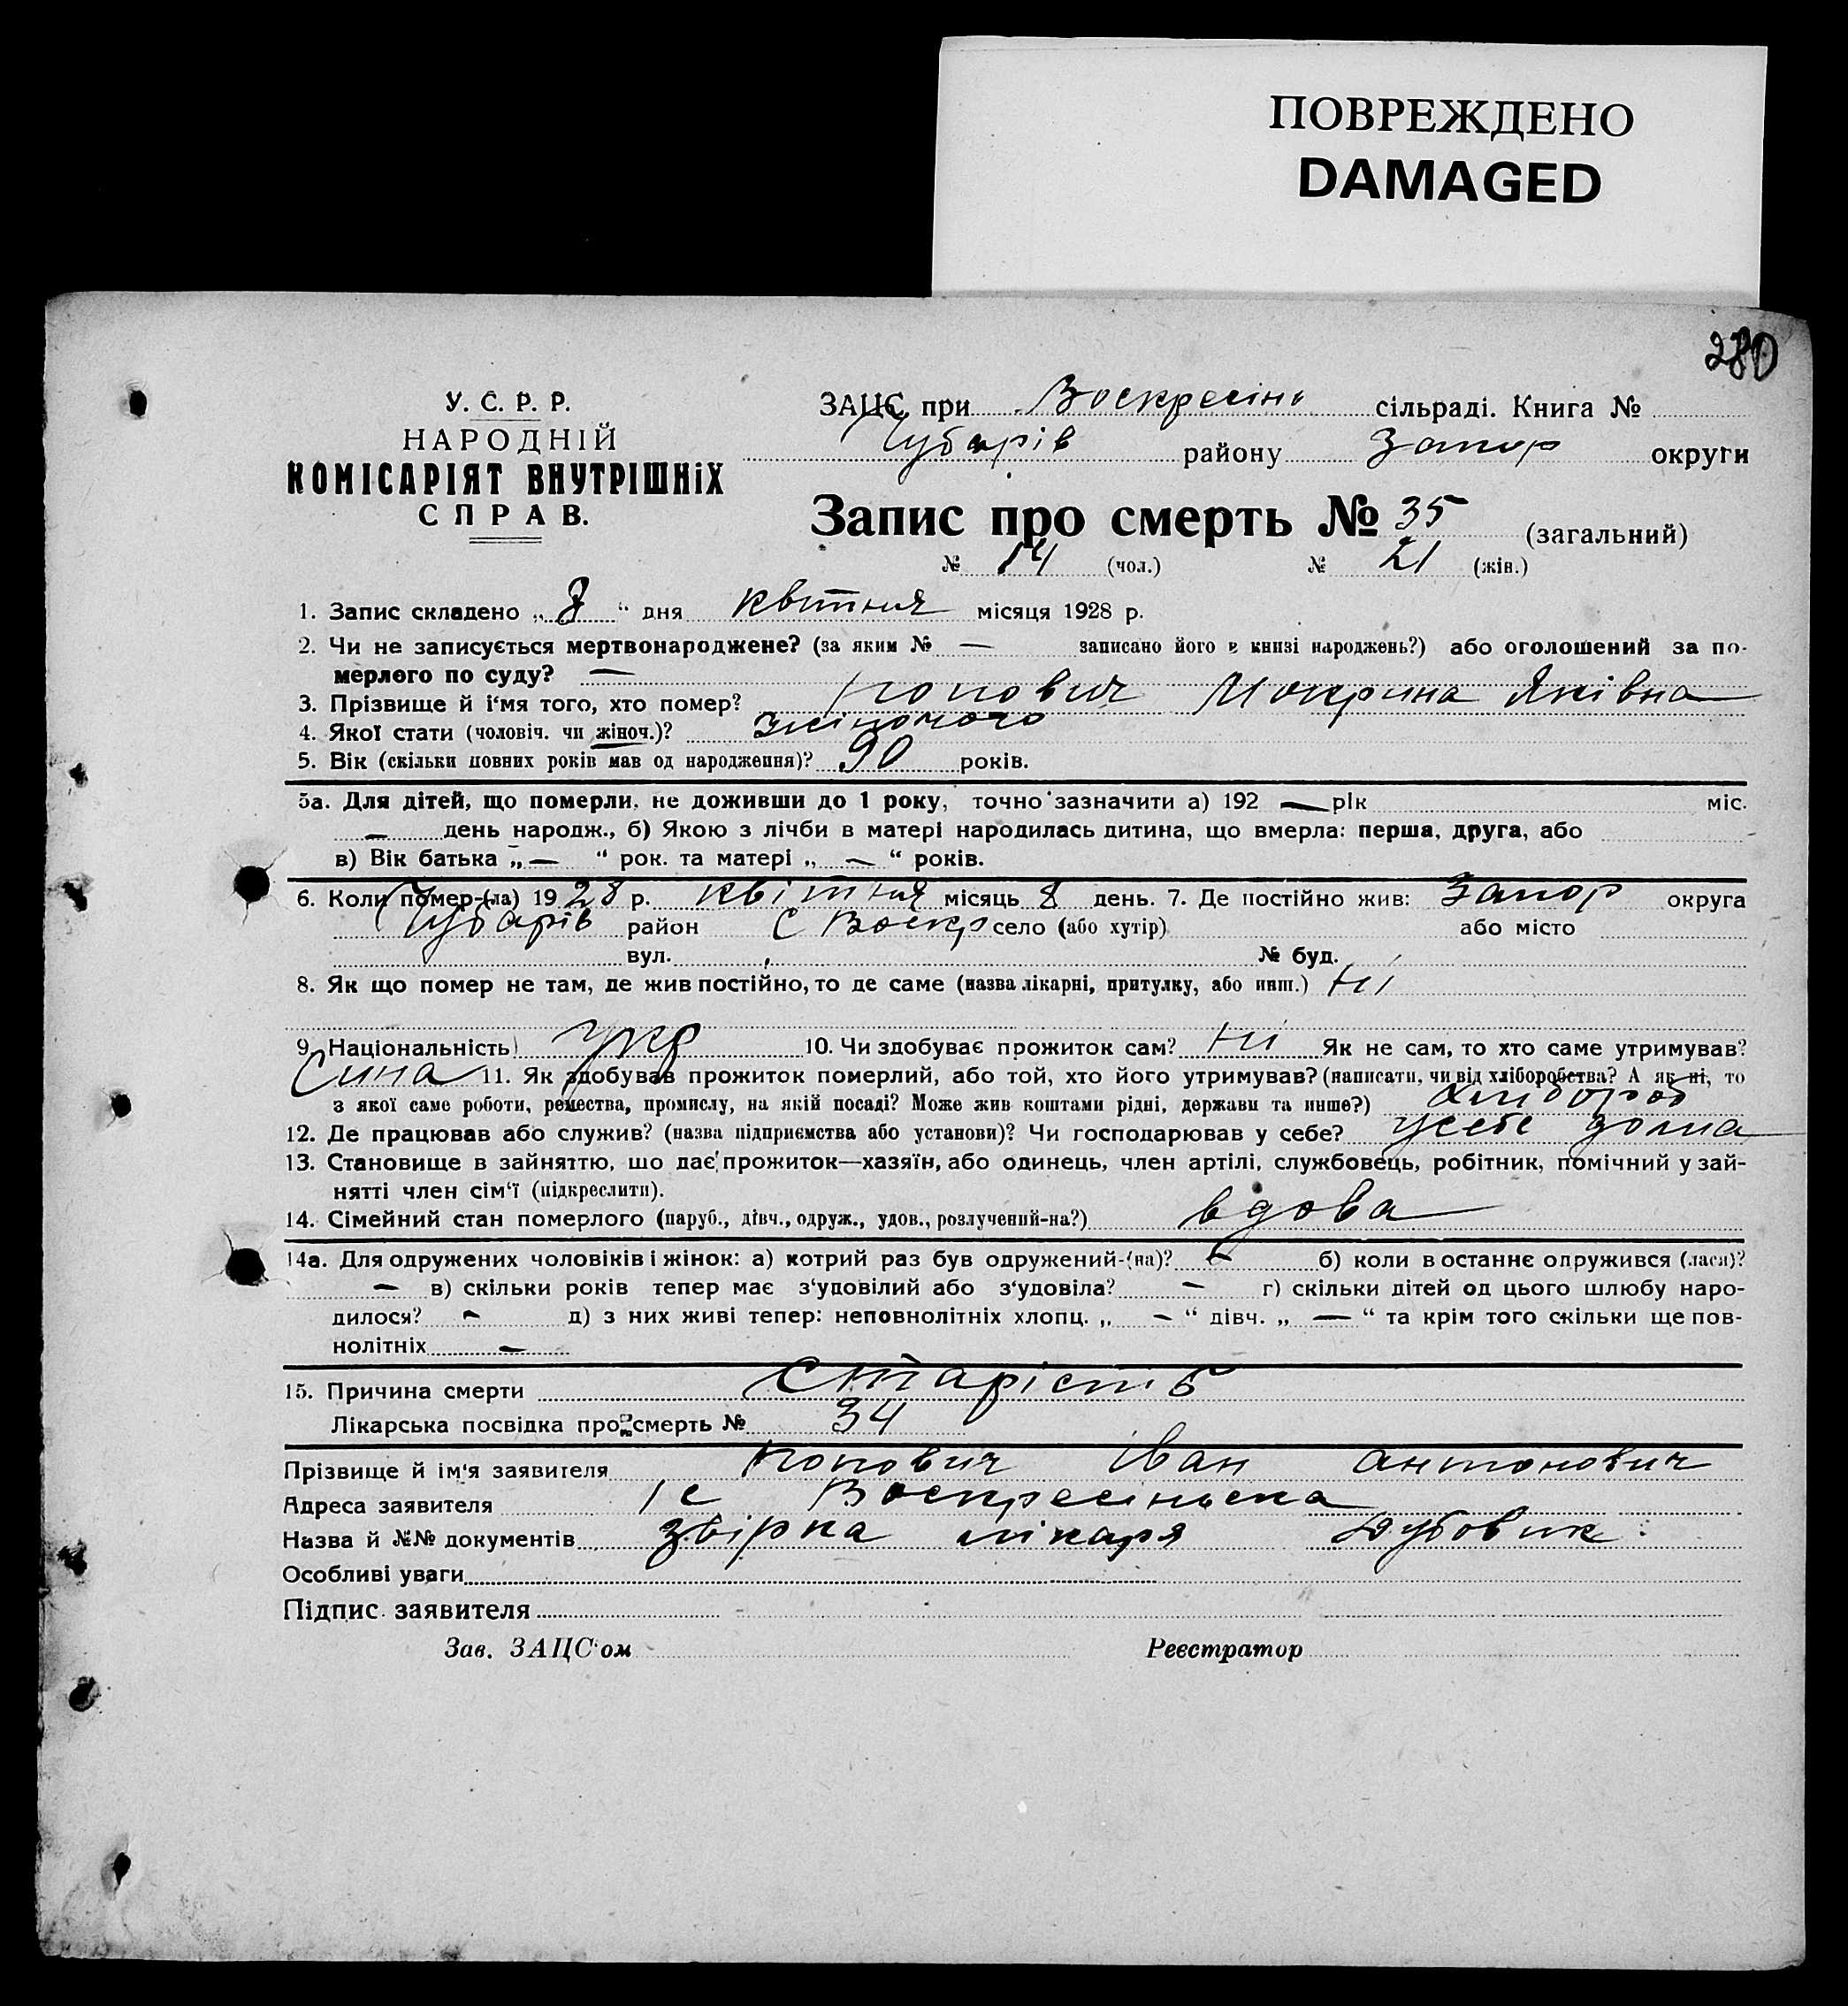 ПОВРЕЖДЕНО
DAMAGED
280
У. С. Р. Р.
НАРОДНІЙ
КОМІСАРІЯТ ВНУТРІШНІХ
СПРАВ.
ЗАЦС при Воскресінь сільраді. Книга №
Чубарів району Запор округи
Запис про смерть № 35 (загальний)
№ 14 (чол.) № 21 (жін.)
1. Запис складено „ 8 “ дня квітня місяця 1928 р.
2. Чи не записується мертвонароджене? (за яким № — записано його в книзі народжень?) або оголошений за по-
мерлого по суду? —
3. Прізвище й і‘мя того, хто помер? Попович Мокрина Яківна
4. Якої стати (чоловіч. чи жіноч.)? жіночого
5. Вік (скільки повних років мав од народження)? 90 років.
5а. Для дітей, що померли, не доживши до 1 року, точно зазначити а) 192 — рік міс.
— день народж., б) Якою з лічби в матері народилась дитина, що вмерла: перша, друга, або
в) Вік батька „ — “ рок. та матері „ — “ років.
6. Коли помер-(ла) 1928 р. квітня місяць 8 день. 7. Де постійно жив: Запор округа
Чубарів район С Воскр село (або хутір) або місто
вул. № буд.
8. Як що помер не там, де жив постійно, то де саме (назва лікарні, притулку, або инш.) Ні
9. Національність укр 10. Чи здобуває прожиток сам? Ні Як не сам, то хто саме утримував?
Сина 11. Як здобував прожиток померлий, або той, хто його утримував? (написати, чи від хліборобства? А як ні, то
з якої саме роботи, ремества, промислу, на якій посаді? Може жив коштами рідні, держави та инше?) хлібороб
12. Де працював або служив? (назва підприємства або установи)? Чи господарював у себе? усебе дома
13. Становище в зайняттю, що дає прожиток—хазяїн, або одинець, член артілі, службовець, робітник, помічний у зай-
нятті член сім‘ї (підкреслити).
14. Сімейний стан померлого (паруб., дівч., одруж., удов., розлучений-на?) вдова
14а. Для одружених чоловіків і жінок: а) котрий раз був одружений-(на)? — б) коли в останнє одружився (лася)?
— в) скільки років тепер має з‘удовілий або з‘удовіла? — г) скільки дітей од цього шлюбу наро-
дилося? — д) з них живі тепер: неповнолітніх хлопц. „ — “ дівч. „ — “ та крім того скільки ще пов-
нолітніх —
15. Причина смерти Старість
Лікарська посвідка про смерть № 34
Прізвище й ім‘я заявителя Попович Іван Антонович
Адреса заявителя с Воскресінська
Назва й №№ документів лікаря Дубовик
Особливі уваги
Підпис заявителя
Зав. ЗАЦС‘ом Реєстратор